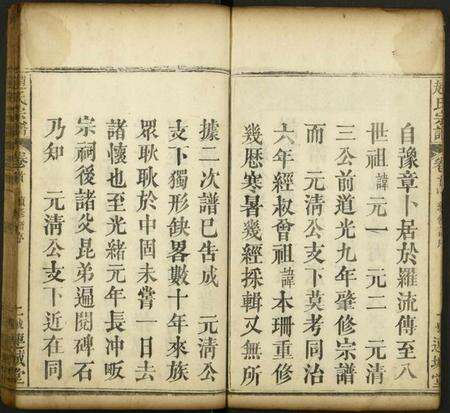 自豫章卜居於羅流傳至八
世祖諱元一 元二 元清
三公前道光九年肇修宗譜
而 元清公支下莫考同治
六年經叔曾祖諱本珊重修
幾歷寒暑幾經採輯又無所
據二次譜已告成 元清公
支下獨形缺畧數十年來族
眾耿耿於中固未嘗一日去
諸懷也至光緒元年長冲畈
宗祠後諸父昆弟遍閱碑石
乃知 元清公支下近在同
趙氏宗譜 卷首
趙氏宗譜 卷首